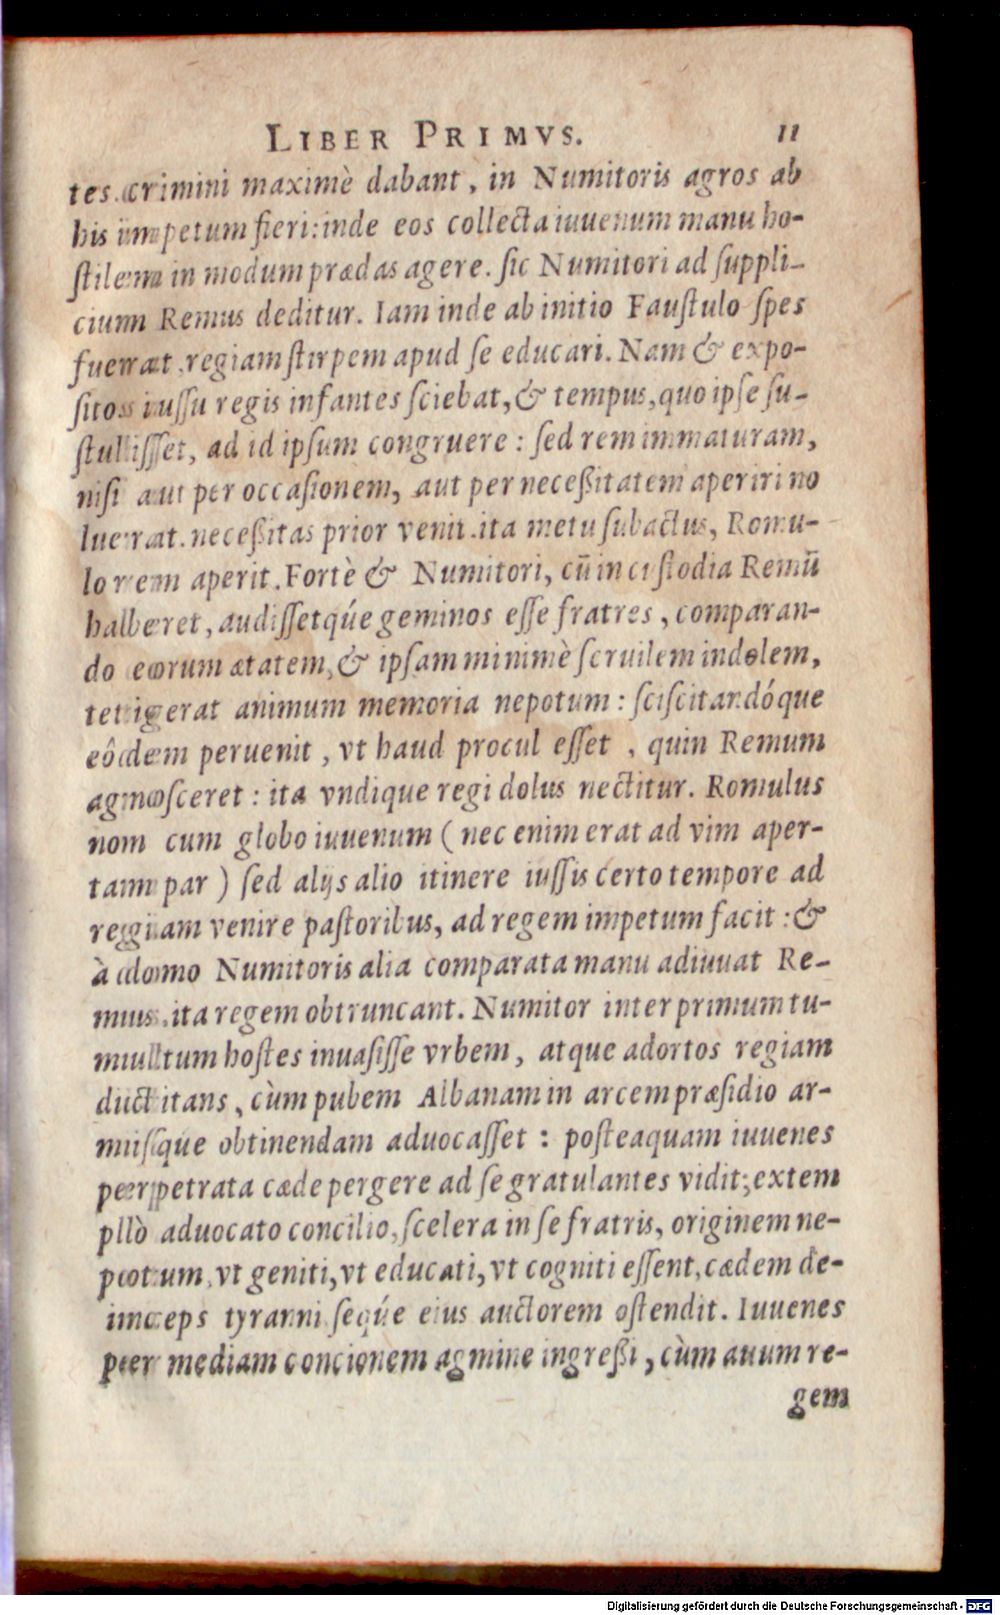 LIBER PRIMVS. 11
tes. crimini maximè dabant, in Numitoris agros ab
his impetum fieri: inde eos collecta iuuenum manu ho-
ſtilem in modum prædas agere. ſic Numitori ad ſuppli-
cium Remus deditur. Iam inde ab initio Fauſtulo ſpes
fuerat regiam ſtirpem apud ſe educari. Nam & expo-
ſitos iuſſu regis infantes ſciebat, & tempus, quo ipſe ſu-
ſtuliſſet, ad id ipſum congruere: ſed rem immaturam,
niſi aut per occaſionem, aut per neceßitatem aperiri no
luerat. neceßitas prior venit. ita metu ſubactus, Romu-
lo rem aperit. Fortè & Numitori, cū in cuſtodia Remū
haberet, audiſſetq́ue geminos eſſe fratres, comparan-
do eorum ætatem, & ipſam minimè ſeruilem indolem,
tetigerat animum memoria nepotum: ſciſcitandóque
eôdem peruenit, vt haud procul eſſet, quin Remum
agnoſceret: ita vndique regi dolus nectitur. Romulus
non cum globo iuuenum (nec enim erat ad vim aper-
tam par) ſed alijs alio itinere iuſſis certo tempore ad
regiam venire paſtoribus, ad regem impetum facit: &
à domo Numitoris alia comparata manu adiuuat Re-
mus. ita regem obtruncant. Numitor inter primum tu-
multum hoſtes inuaſiſſe vrbem, atque adortos regiam
dictitans, cùm pubem Albanam in arcem præſidio ar-
miſque obtinendam aduocaſſet: poſteaquam iuuenes
perpetrata cæde pergere ad ſe gratulantes vidit; extem
plò aduocato concilio, ſcelera in ſe fratris, originem ne-
potum, vt geniti, vt educati, vt cogniti eſſent, cædem de-
inceps tyranni ſeq́ue eius auctorem oſtendit. Iuuenes
per mediam concionem agmine ingreßi, cùm auum re-
gem
Digitalisierung gefördert durch die Deutsche Forschungsgemeinschaft - DFG